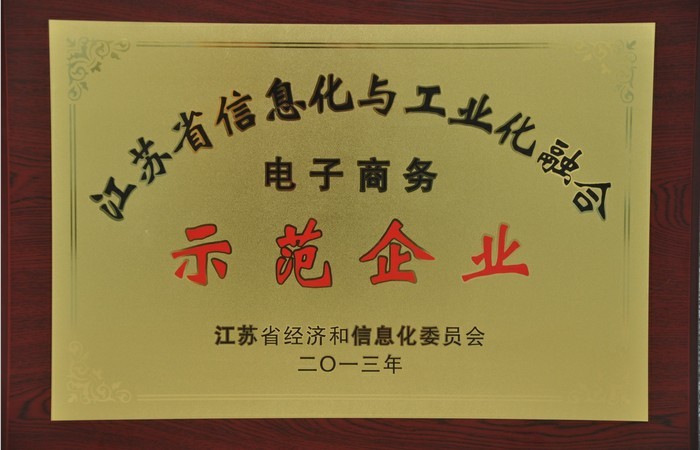 江苏省信息化与工业化融合
电子商务
示范企业
江苏省经济和信息化委员会
二〇一三年